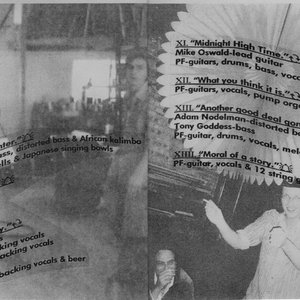 nter."
ss, distorted bass & African kalimba
lls & Japanese singing bowls
y."
cking vocals
acking vocals
backing vocals & beer
XI. "Midnight High Time."
Mike Oswald-lead guitar
PF-guitars, drums, bass, voca
XII. "What you think it is."
PF-guitars, vocals, pump org
XIII. "Another good deal gon
Adam Nodelman-distorted b
Tony Goddess-bass
PF-guitar, drums, vocals, mel
XIIII. "Moral of a story."
PF-guitar, vocals & 12 string